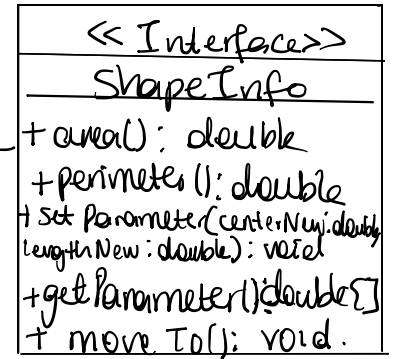 <<Interface>>
ShapeInfo
+ area(): double
+ perimeter(): double
+ set Parameter(centerNew: double,
lengthNew: double): void
+ getParameter(): double[]
+ move To(): void.